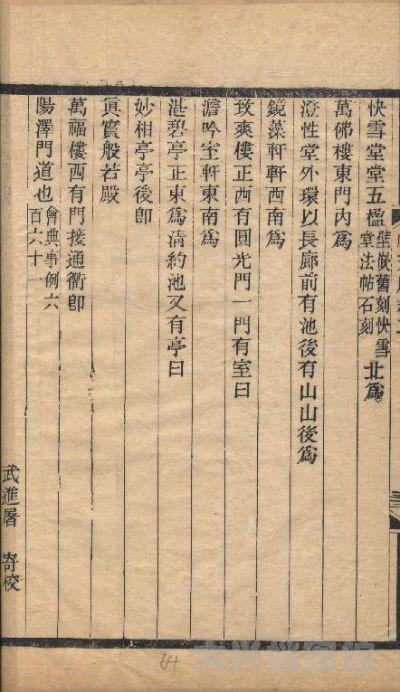 快雪堂堂五楹壁嵌舊刻快雪堂法帖石刻北爲
萬佛樓東門內爲
澄性堂外環以長廊前有池後有山山後爲
鏡藻軒軒西南爲
致爽樓正西有圓光門一門有室曰
澹吟室軒東南爲
湛碧亭正東爲清約池又有亭曰
妙相亭亭後卽
眞實般若殿
萬福樓西有門接通衢卽
陽澤門道也會典事例六百六十一
武進屠 寄校
64